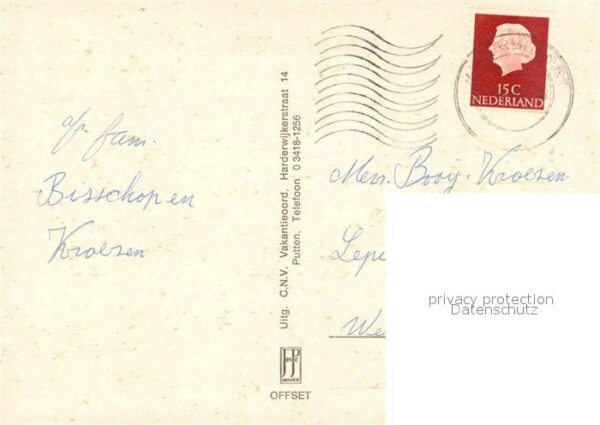 afz fam.
Bisschop en
Kroezen
Uitg. C.N.V. Vakantieoord, Harderwijkerstraat 14
Putten, Telefoon 0 3418-1256
OFFSET
15C
NEDERLAND
Mevr. Booij-Kroezen
privacy protection
Datenschutz